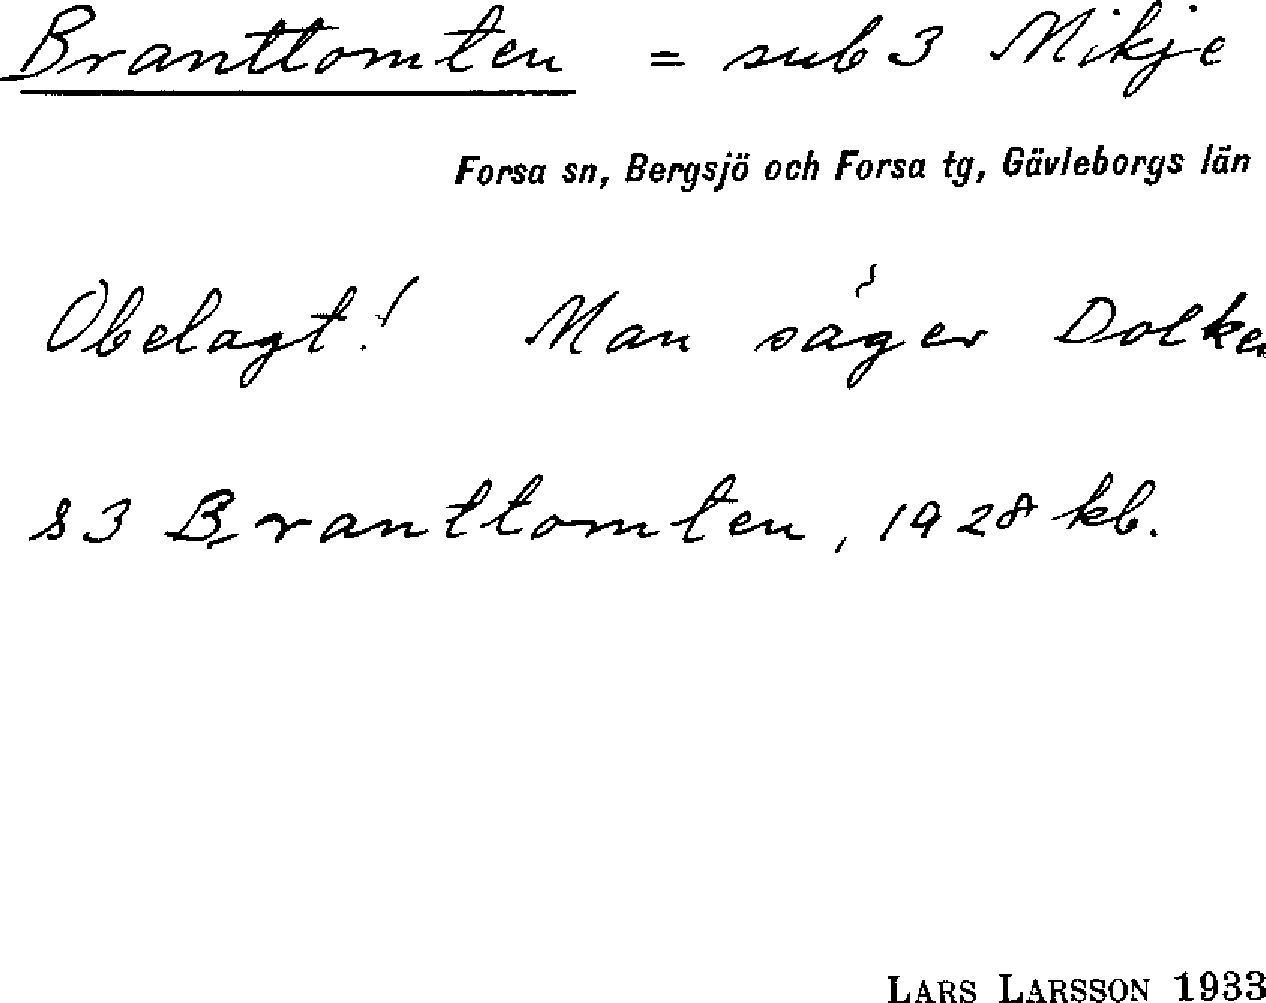 Branttomten = sub 3 Mikje
Forsa sn, Bergsjö och Forsa tg, Gävleborgs län
Obelagt! Man säger Dolken
s 3 Branttomten, 1928 kb.
LARS LARSSON 1933